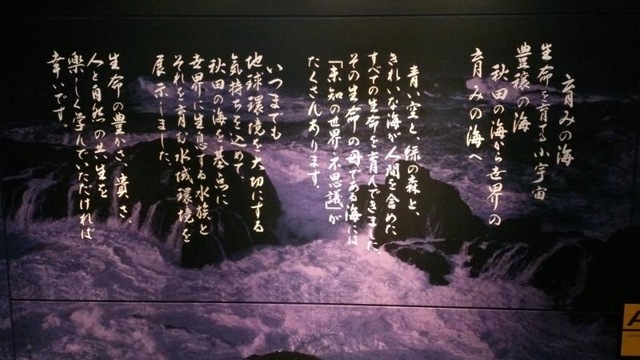 育みの海
生命を育る小宇宙
豊穣の海
秋田の海から世界の
育みの海へ
青い空と、緑の森と、
きれいな海が人間を含めた、
すべての生命を育んできました。
その生命の母である海には
「未知の世界、不思議」が
たくさんあります。
いつまでも
地球環境を大切にする
気持ちを込めて、
秋田の海を基点に
世界に生息する水族と
それを育む水域環境を
展示しました。
生命の豊かさ、貴さ、
人と自然の共生を
楽しく学んでいただければ
幸いです。